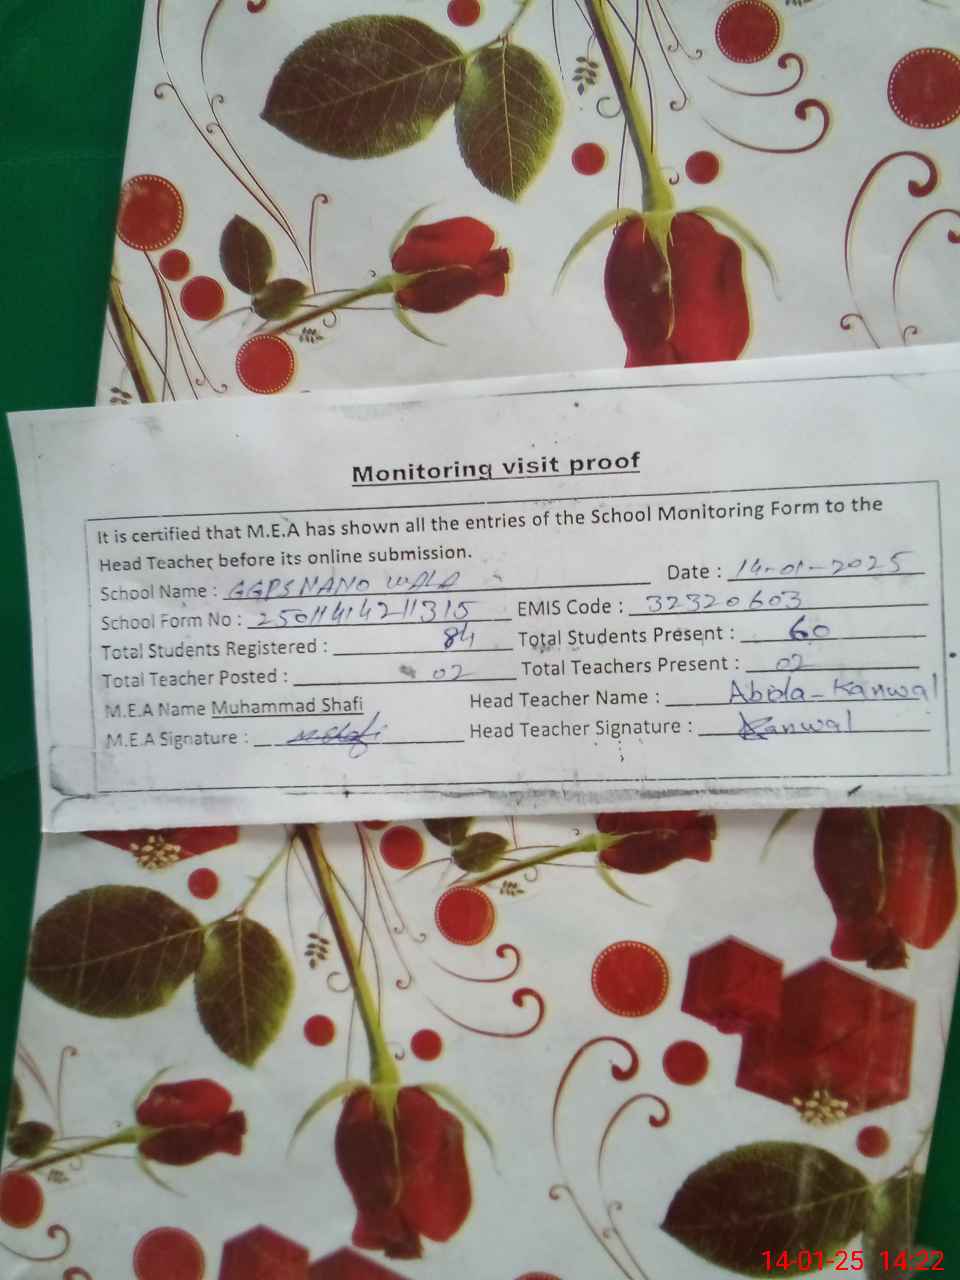 Monitoring visit proof
It is certified that M.E.A has shown all the entries of the School Monitoring Form to the
Head Teacher before its online submission.
School Name : GGPS NANO WALA Date : 14-01-2025
School Form No : 25011414211315 EMIS Code : 32320603
Total Students Registered : 84 Total Students Present : 60
Total Teacher Posted : 02 Total Teachers Present : 02
M.E.A Name Muhammad Shafi Head Teacher Name : Abida Kanwal
M.E.A Signature : M Shafi Head Teacher Signature : Kanwal
14-01-25 14:22